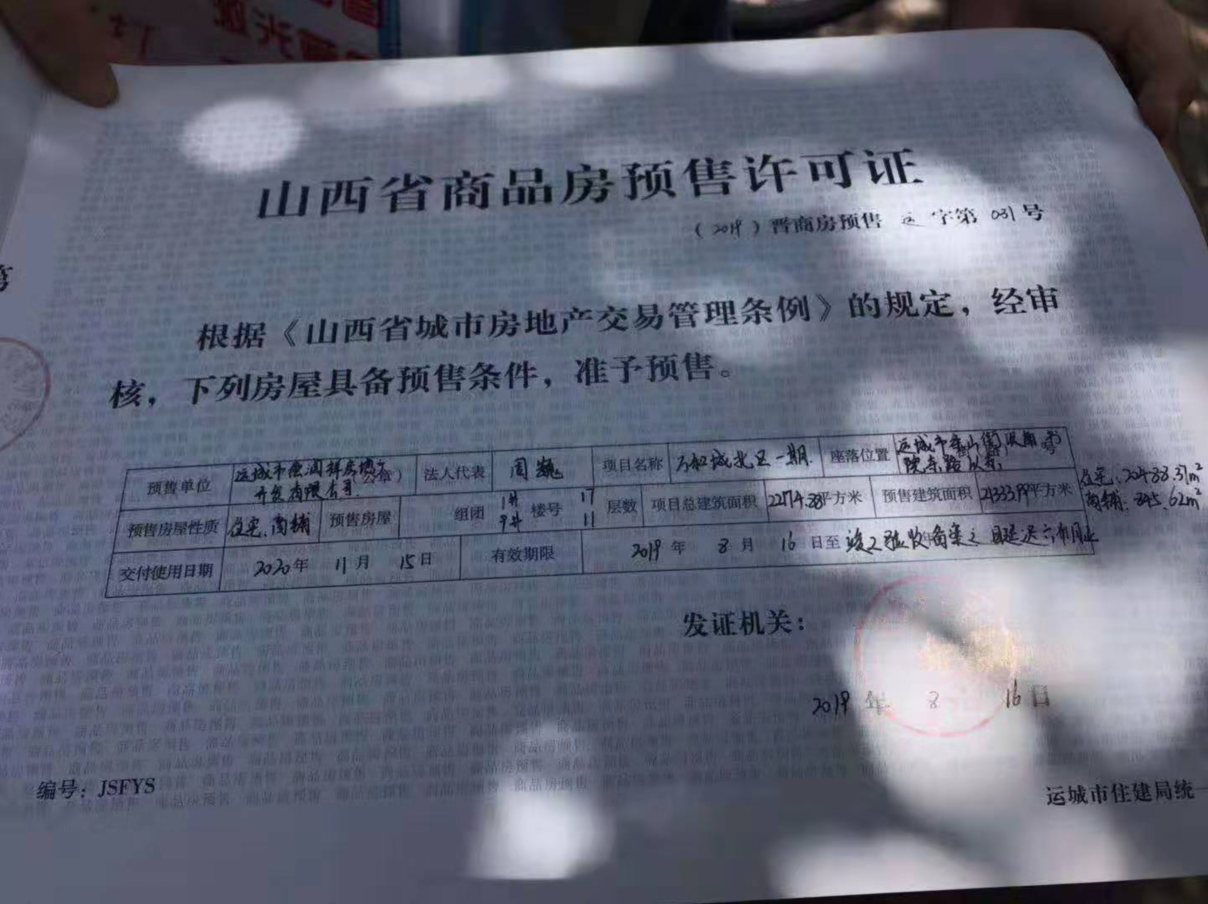 激光
山西省商品房预售许可证
（2019）晋商房预售 运 字第 031 号
根据《山西省城市房地产交易管理条例》的规定，经审
核，下列房屋具备预售条件，准予预售。
预售单位 运城市 润祥房地产开发有限公司 法人代表 周巍 项目名称 万和城北区一期 座落位置 运城市 街以南 书院东路以东
预售房屋性质 住宅、商铺 预售房屋 组团 1# 9# 楼号 17 11 层数 项目总建筑面积 22714.38平方米 预售建筑面积 21333.99平方米 住宅：20488.37m² 商铺：845.62m²
交付使用日期 2020年 11月 15日 有效期限 2019 年 8 月 16 日至 竣工验收备案之日延迟六个月止
发证机关：
2019 年 8 16 日
编号：JSFYS
运城市住建局统一